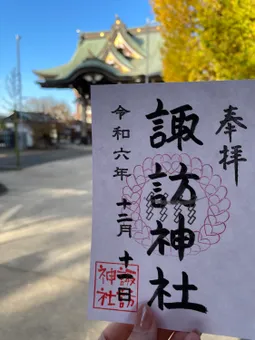 奉拝
諏訪神社
令和六年
十二月十一日
諏訪
神社